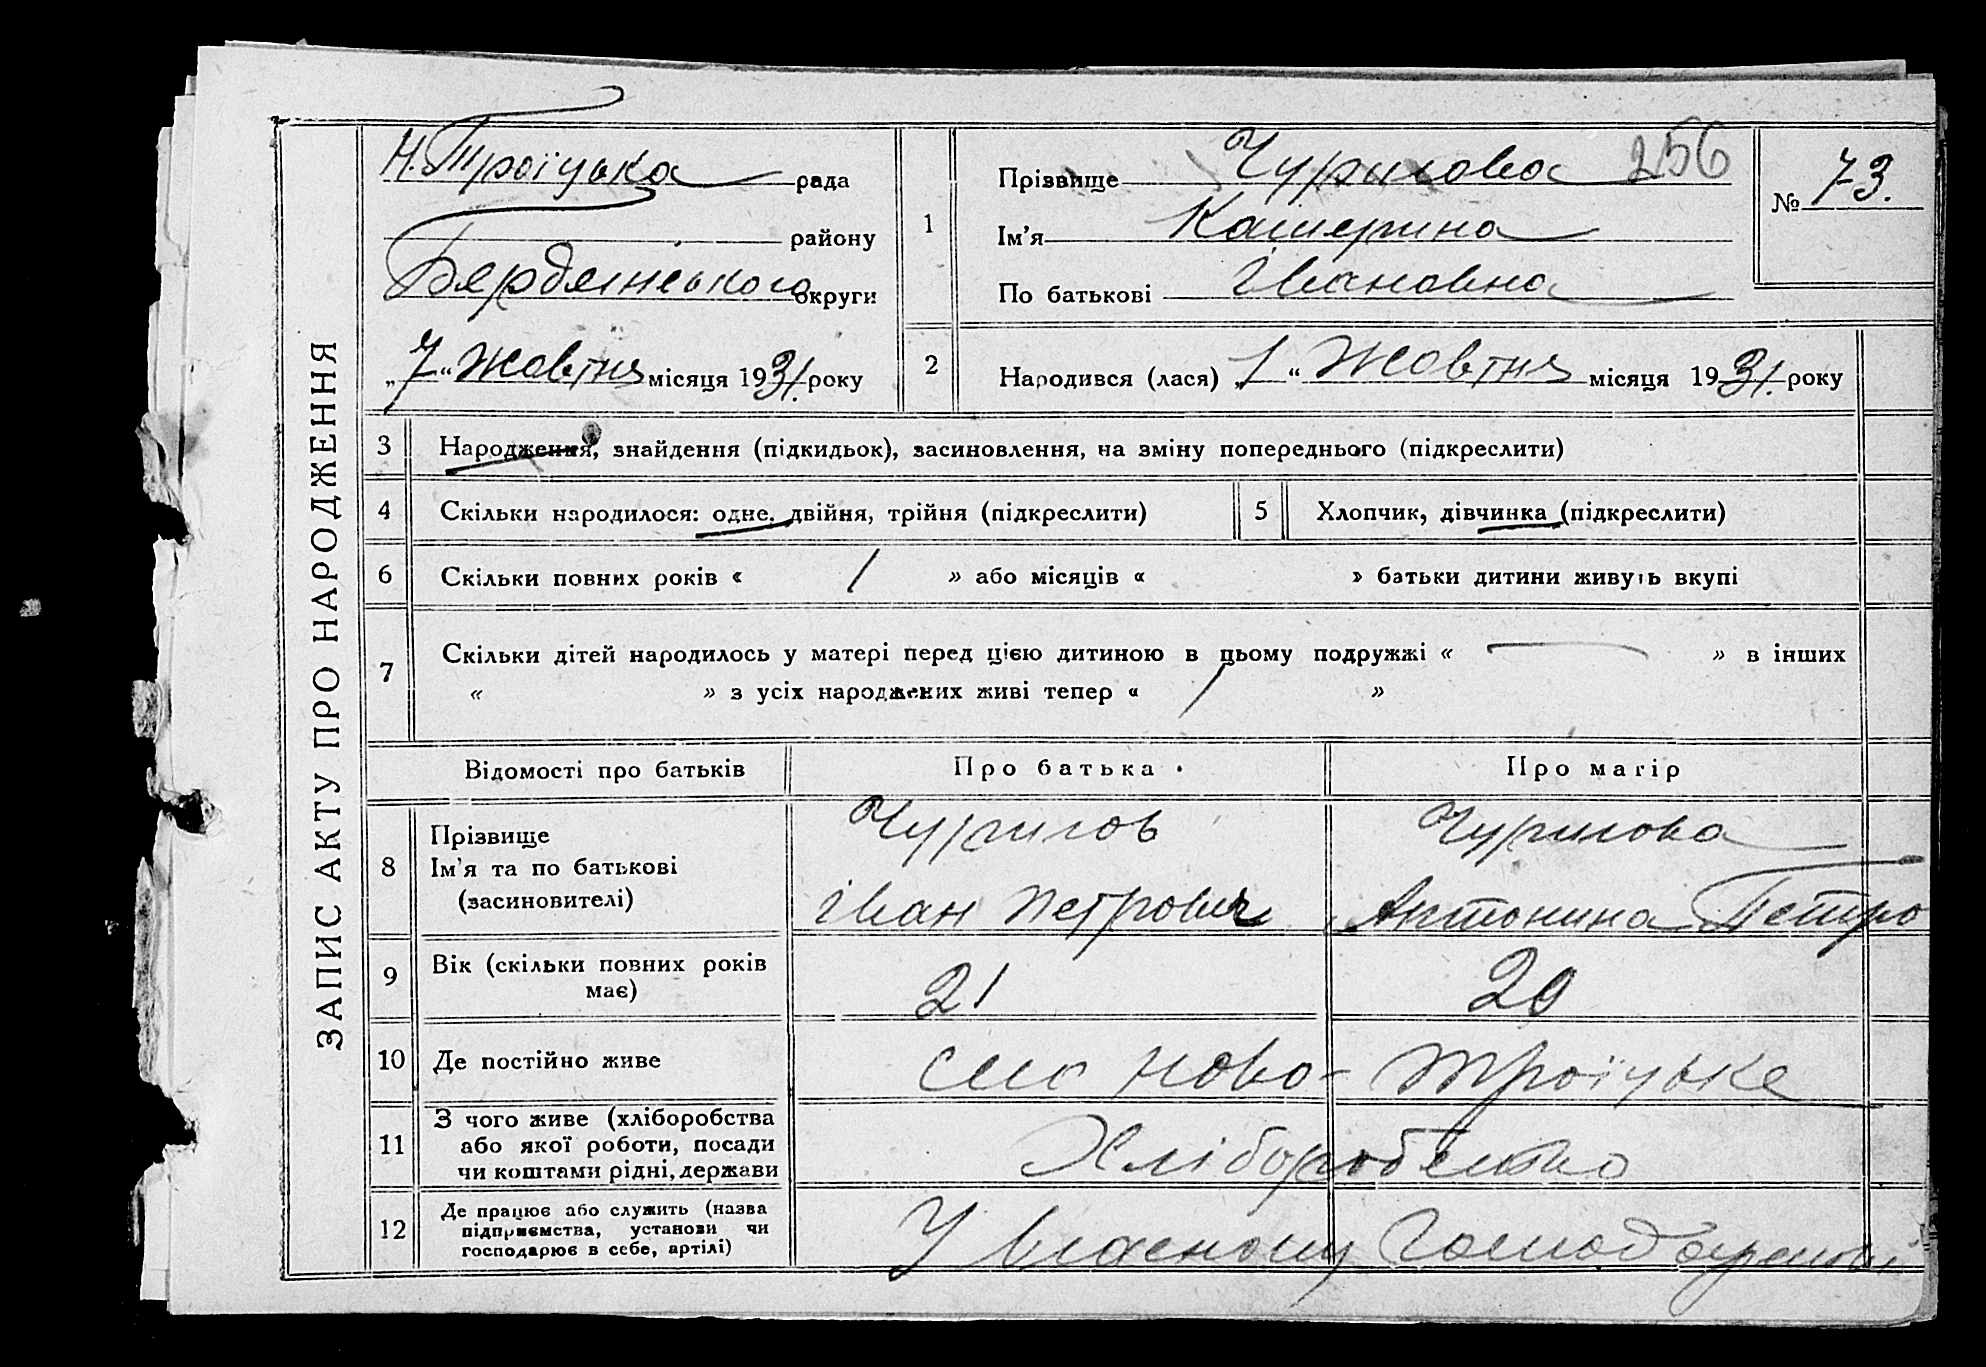 ЗАПИС АКТУ ПРО НАРОДЖЕННЯ
Н. Троїцька рада
району
Бердянського округи
„ 7 “ Жовтня місяця 1931. року
1
Прізвище Чурикова
256
№ 73.
Ім’я Катерина
По батькові Івановна
2 Народився (лася) „ 1 “ Жовтня місяця 1931. року
3 Народження, знайдення (підкидьок), засиновлення, на зміну попереднього (підкреслити)
4 Скільки народилося: одне, двійня, трійня (підкреслити)
5 Хлопчик, дівчинка (підкреслити)
6 Скільки повних років « 1 » або місяців « » батьки дитини живуть вкупі
7 Скільки дітей народилось у матері перед цією дитиною в цьому подружжі « — » в інших
« » з усіх народжених живі тепер « 1 »
Відомості про батьків Про батька Про матір
8 Прізвище
Ім’я та по батькові
(засиновителі)
Чуриков
Іван Петрович
Чурикова
Антонина Петро
9 Вік (скільки повних років
має)
21 20
10 Де постійно живе село Ново-Троїцьке
11 З чого живе (хліборобства
або якої роботи, посади
чи коштами рідні, держави
Хліборобство
12 Де працює або служить (назва
підприємства, установи чи
господарює в себе, артілі)
У власному господарстві